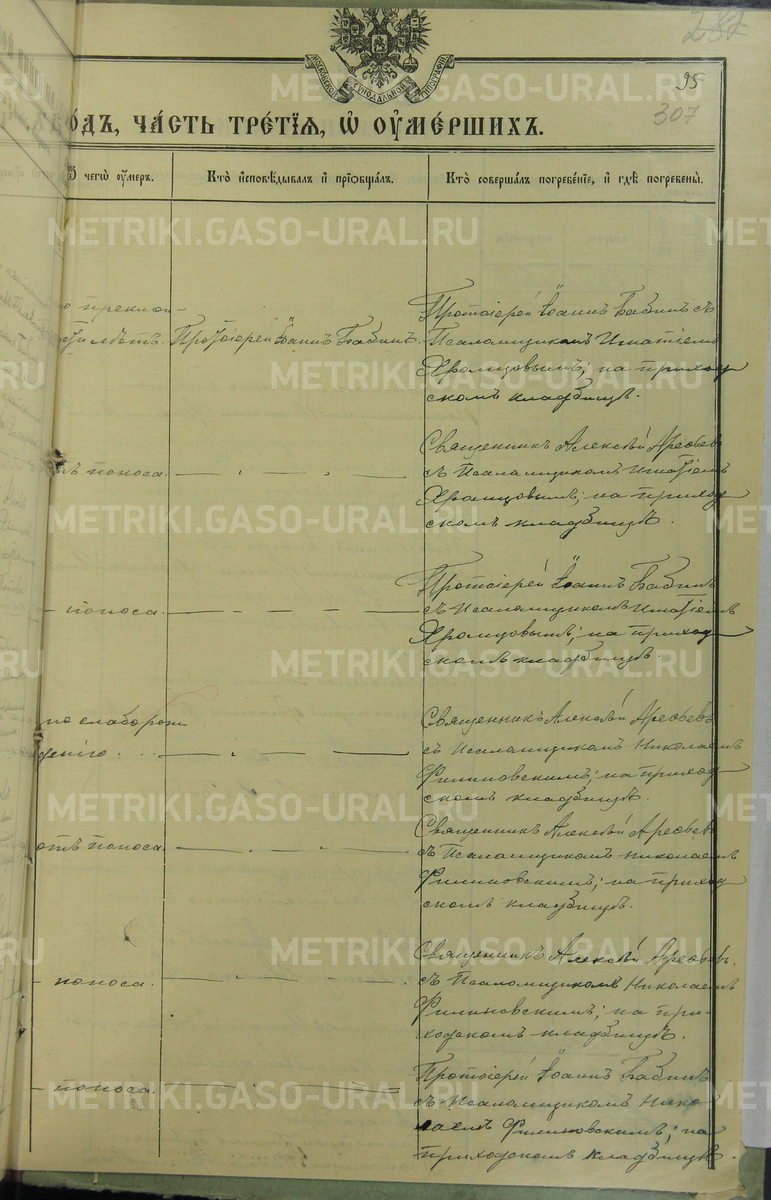 287
95
307
МОСКОВСКОЙ СѴНОДАЛЬНОЙ ТИПОГРАФІИ
METRIKI.GASO-URAL.RU
ГО́ДЪ, ЧА́СТЬ ТРЕ́ТІѦ, Ѡ ОУ҆МЕ́РШИХЪ.
Ѿ чегѡ̀ оу҆́меръ.
Кто̀ и҆сповѣ́дывалъ и҆ прїѡбща́лъ.
Кто̀ соверша́лъ погребе́нїе, и҆ гдѣ̀ погребены̀.
о преклон-
лѣтъ.
Протоіерей Іоаннъ Бабинъ.
Протоіерей Іоаннъ Бабинъ съ
Псаломщикомъ Игнатіемъ
Хромцовымъ; на приход
скомъ кладбищѣ.
поноса.
Священникъ Алексѣй Арефьевъ
съ Псаломщикомъ Игнатіемъ
Хромцовымъ; на приход
скомъ кладбищѣ.
поноса.
Протоіерей Іоаннъ Бабинъ
съ Псаломщикомъ Игнатіемъ
Хромцовымъ; на приход
скомъ кладбищѣ.
по слаборож
денію.
Священникъ Алексѣй Арефьевъ
съ Псаломщикомъ Николаемъ
Филиновскимъ; на приход
скомъ кладбищѣ.
отъ поноса
Священникъ Алексѣй Арефьевъ
съ Псаломщикомъ Николаемъ
Филиновскимъ; на приход
скомъ кладбищѣ.
поноса.
Священникъ Алексѣй Арефьевъ.
съ Псаломщикомъ Николаемъ
Филиновскимъ; на при-
ходскомъ кладбищѣ.
поноса.
Протоіерей Іоаннъ Бабинъ
съ Псаломщикомъ Нико-
лаемъ Филиновскимъ; на
приходскомъ кладбищѣ.